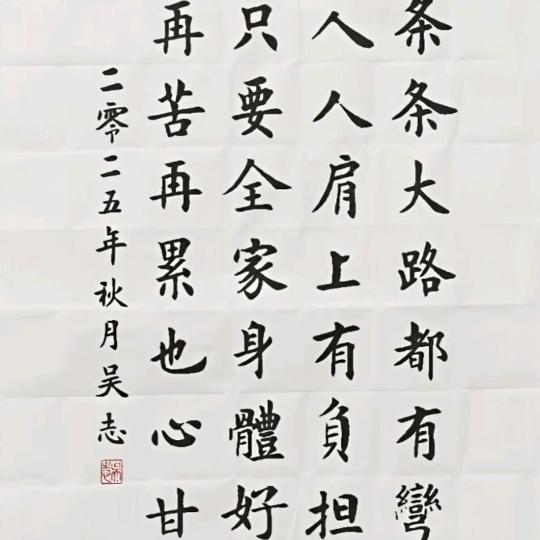 条条大路都有彎
人人肩上有負担
只要全家身體好
再苦再累也心甘
二零二五年秋月吴志